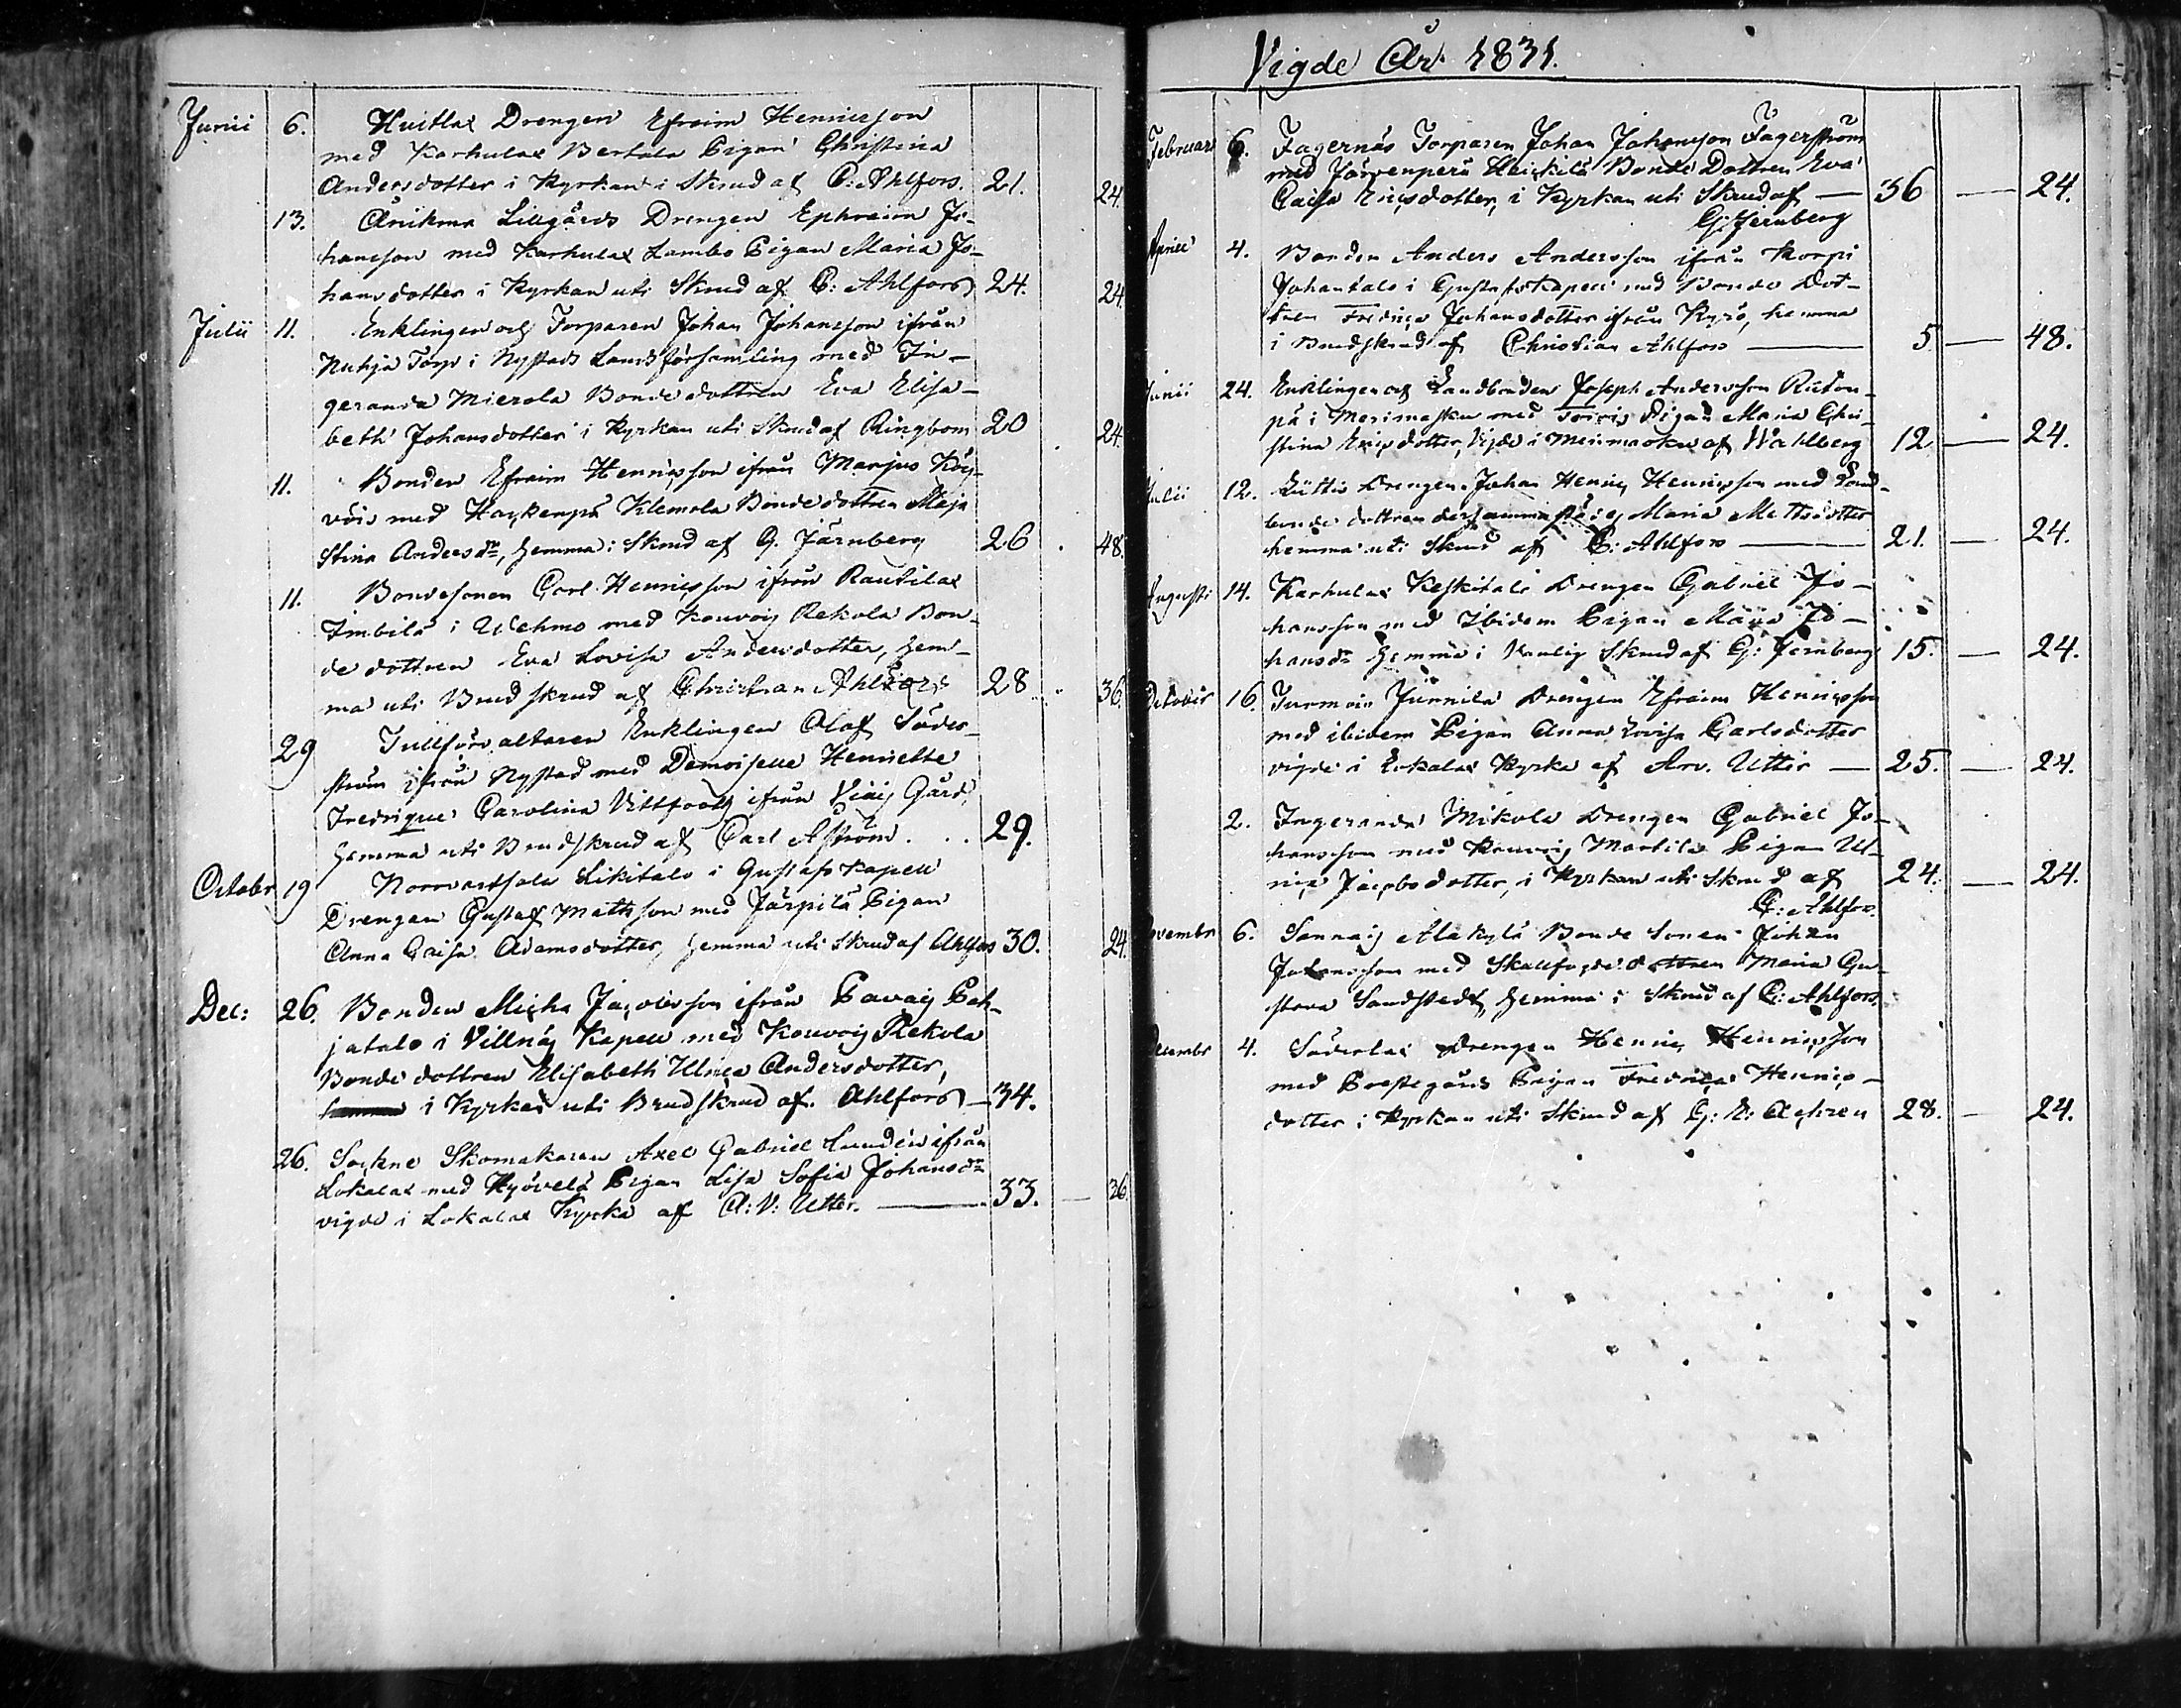 Junii 6. Huitlax Drengen Efraim Henricsson
med Karhulax Bertala Pigan Christina
Andersdotter i Kyrkan i Skrud af C: Ahlfors. 21. 24
13. Änikma Lillgårds Drengen Ephraim Jo-
hansson med Karhulax Lambo Pigan Maria Jo-
hansdotter i Kyrkan uti Skrud af C: Ahlfors 24. 24
Julii 11. Enklingen och Torparen Johan Johansson ifrån
Nuhja Torp i Nystads Landsförsamling med In-
geranda Mierola Bondedottren Eva Elisa-
beth Johansdotter i Kyrkan uti Skrud af Ringbom 20 24.
11. Bonden Efraim Henricsson ifrån Marjus Köy-
väis med Haykenpä Klemola Bondedottren Maja
Stina Andersdr, hemma i Skrud af G. Järnberg 26 48.
11. Bondesonen Carl Henricsson ifrån Rautila
Imbilä i Wehmo med Kouvoig Rekola Bon-
de dottren Eva Lovisa Andersdotter, hem-
ma uti Brudskrud af Christian Ahlfors 28 36
29 Tullförvaltaren Enklingen Olof Söder-
ström ifrån Nystad med Demoiselle Henriette
Fredrique Carolina Vittfooth ifrån Viais Gård,
hemma uti Brudskrud af Carl Aström . . 29.
October 19 Norrvartsala Likitalo i Gustafs Kapell
Drengen Gustaf Mathsson med Järpilä Pigan
Anna Caisa Adamsdotter, hemma uti Skrud af Ahlfors 30. 24
Dec: 26. Bonden Micha Jacobsson ifrån Pavaig Pah-
jatalo i Villnäs Kapell med Kouvoig Rekola
Bonde dottren Elisabeth Ulrica Andersdotter,
i Kyrkan uti Brudskrud af. Ahlfors — 34.
26. Sockne Skomakaren Axel Gabriel Lundén ifrån
Lokalax med Kyövelä Pigan Lisa Sofia Johansdr
vigde i Lokalax Kyrka af A: V: Utter. — 33. — 36
Vigde År 1831.
Februari 6. Fagernäs Torparen Johan Johansson Fagerström
med Järvenperä Heickilä Bonde Dottren Eva
Caisa Ericsdotter, i Kyrkan uti Skrud af — 36 — 24.
G: Jernberg
Aprill 4. Bonden Anders Andersson ifrån Korpi
Johantalo i Gustafs Kapell med Bonde Dot-
tren Fredrica Johansdotter ifrån Kyrö, hemma
i Brudskrud af Christian Ahlfors — 5 — 48.
Junii 24. Enklingen och Landbonden Joseph Andersson
på i Merimasku med Pigan Maria Chri-
stina Ericsdotter, Vigde i Merimasku af Wahlberg 12 — 24.
Julii 12. Drengen Johan Henric Henricsson med Land-
bonde dottren dersammastädes Maria Mattsdotter
hemma uti Skrud af C: Ahlfors — 21. — 24.
Augusti 14. Karhulax Keskitalo Drengen Gabriel Jo-
hansson med Ibidem Pigan Maria Jo-
hansdr hemma i Vanlig Skrud af G: Jernberg 15. — 24.
October 16. Jurmois Junnila Drengen Efraim Henricsson
med ibidem Pigan Anna Lovisa Carlsdotter
vigde i Lokalax Kyrka af Arv. Utter — 25. — 24.
2. Ingeranda Mikola Drengen Gabriel Jo-
hansson med Kouvoig Martila Pigan Ul-
rica Jacobsdotter, i Kyrkan uti Skrud af 24. — 24.
C: Ahlfors.
Novembr 6. Sannaig Alakylä Bonde Sonen Johan
Johansson med Skallfogde dottren Maria Gu-
stava Sandstedt, hemma i Skrud af C: Ahlfors.
Decembr 4. Söderlax Drengen Henric Henricsson
med Prestegårds Pigan Fredrica Henrics-
dotter i Kyrkan uti Skrud af 28. — 24.